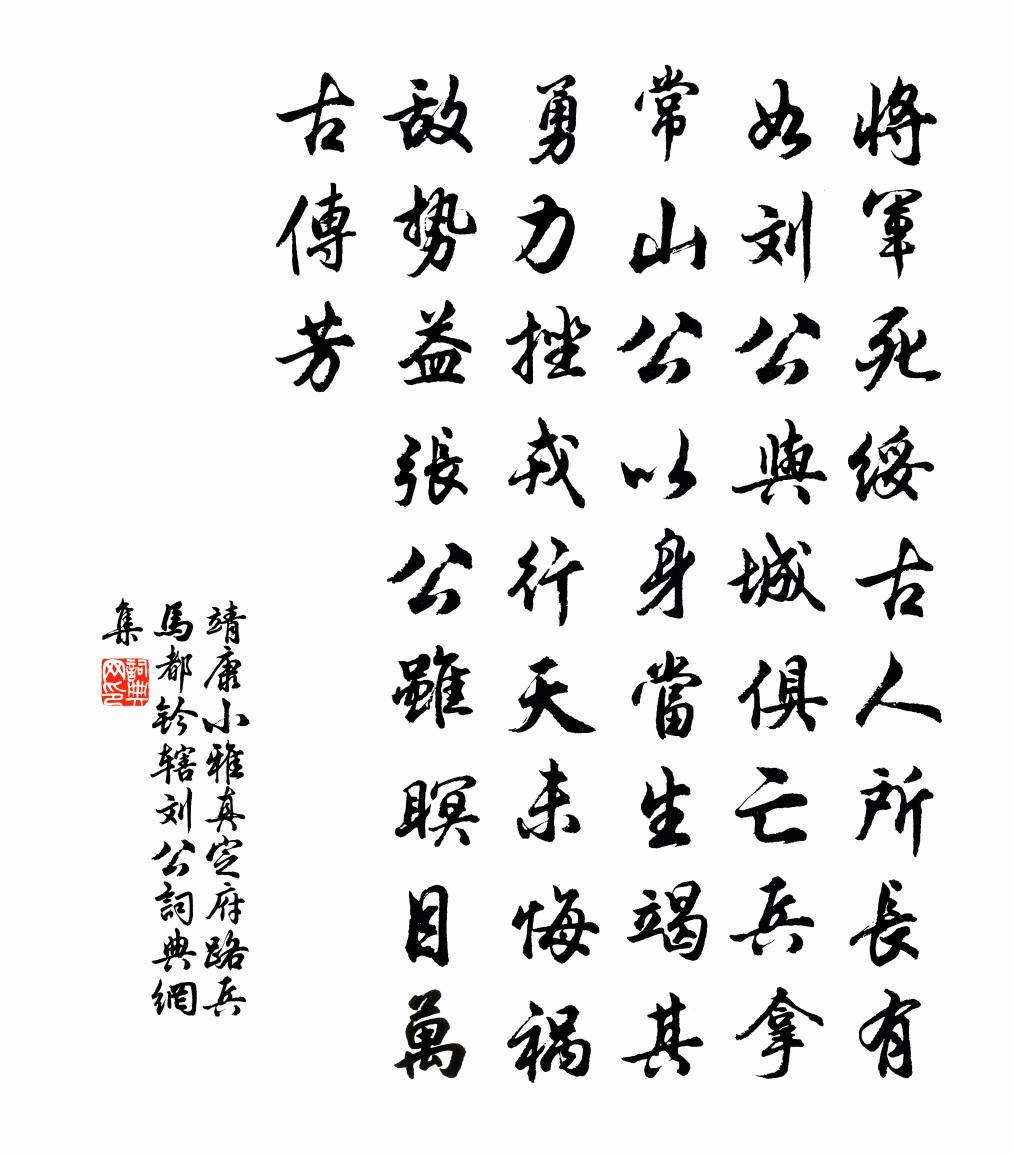 將軍死綏古人所長有
如刘公與城俱亡兵拿
常山公以身當生竭其
勇力挫戎行天未悔禍
敌势益張公雖瞑目萬
古傳芳
靖康小雅真定府路兵
馬都钤辖刘公詞典網
集
詞典
网印